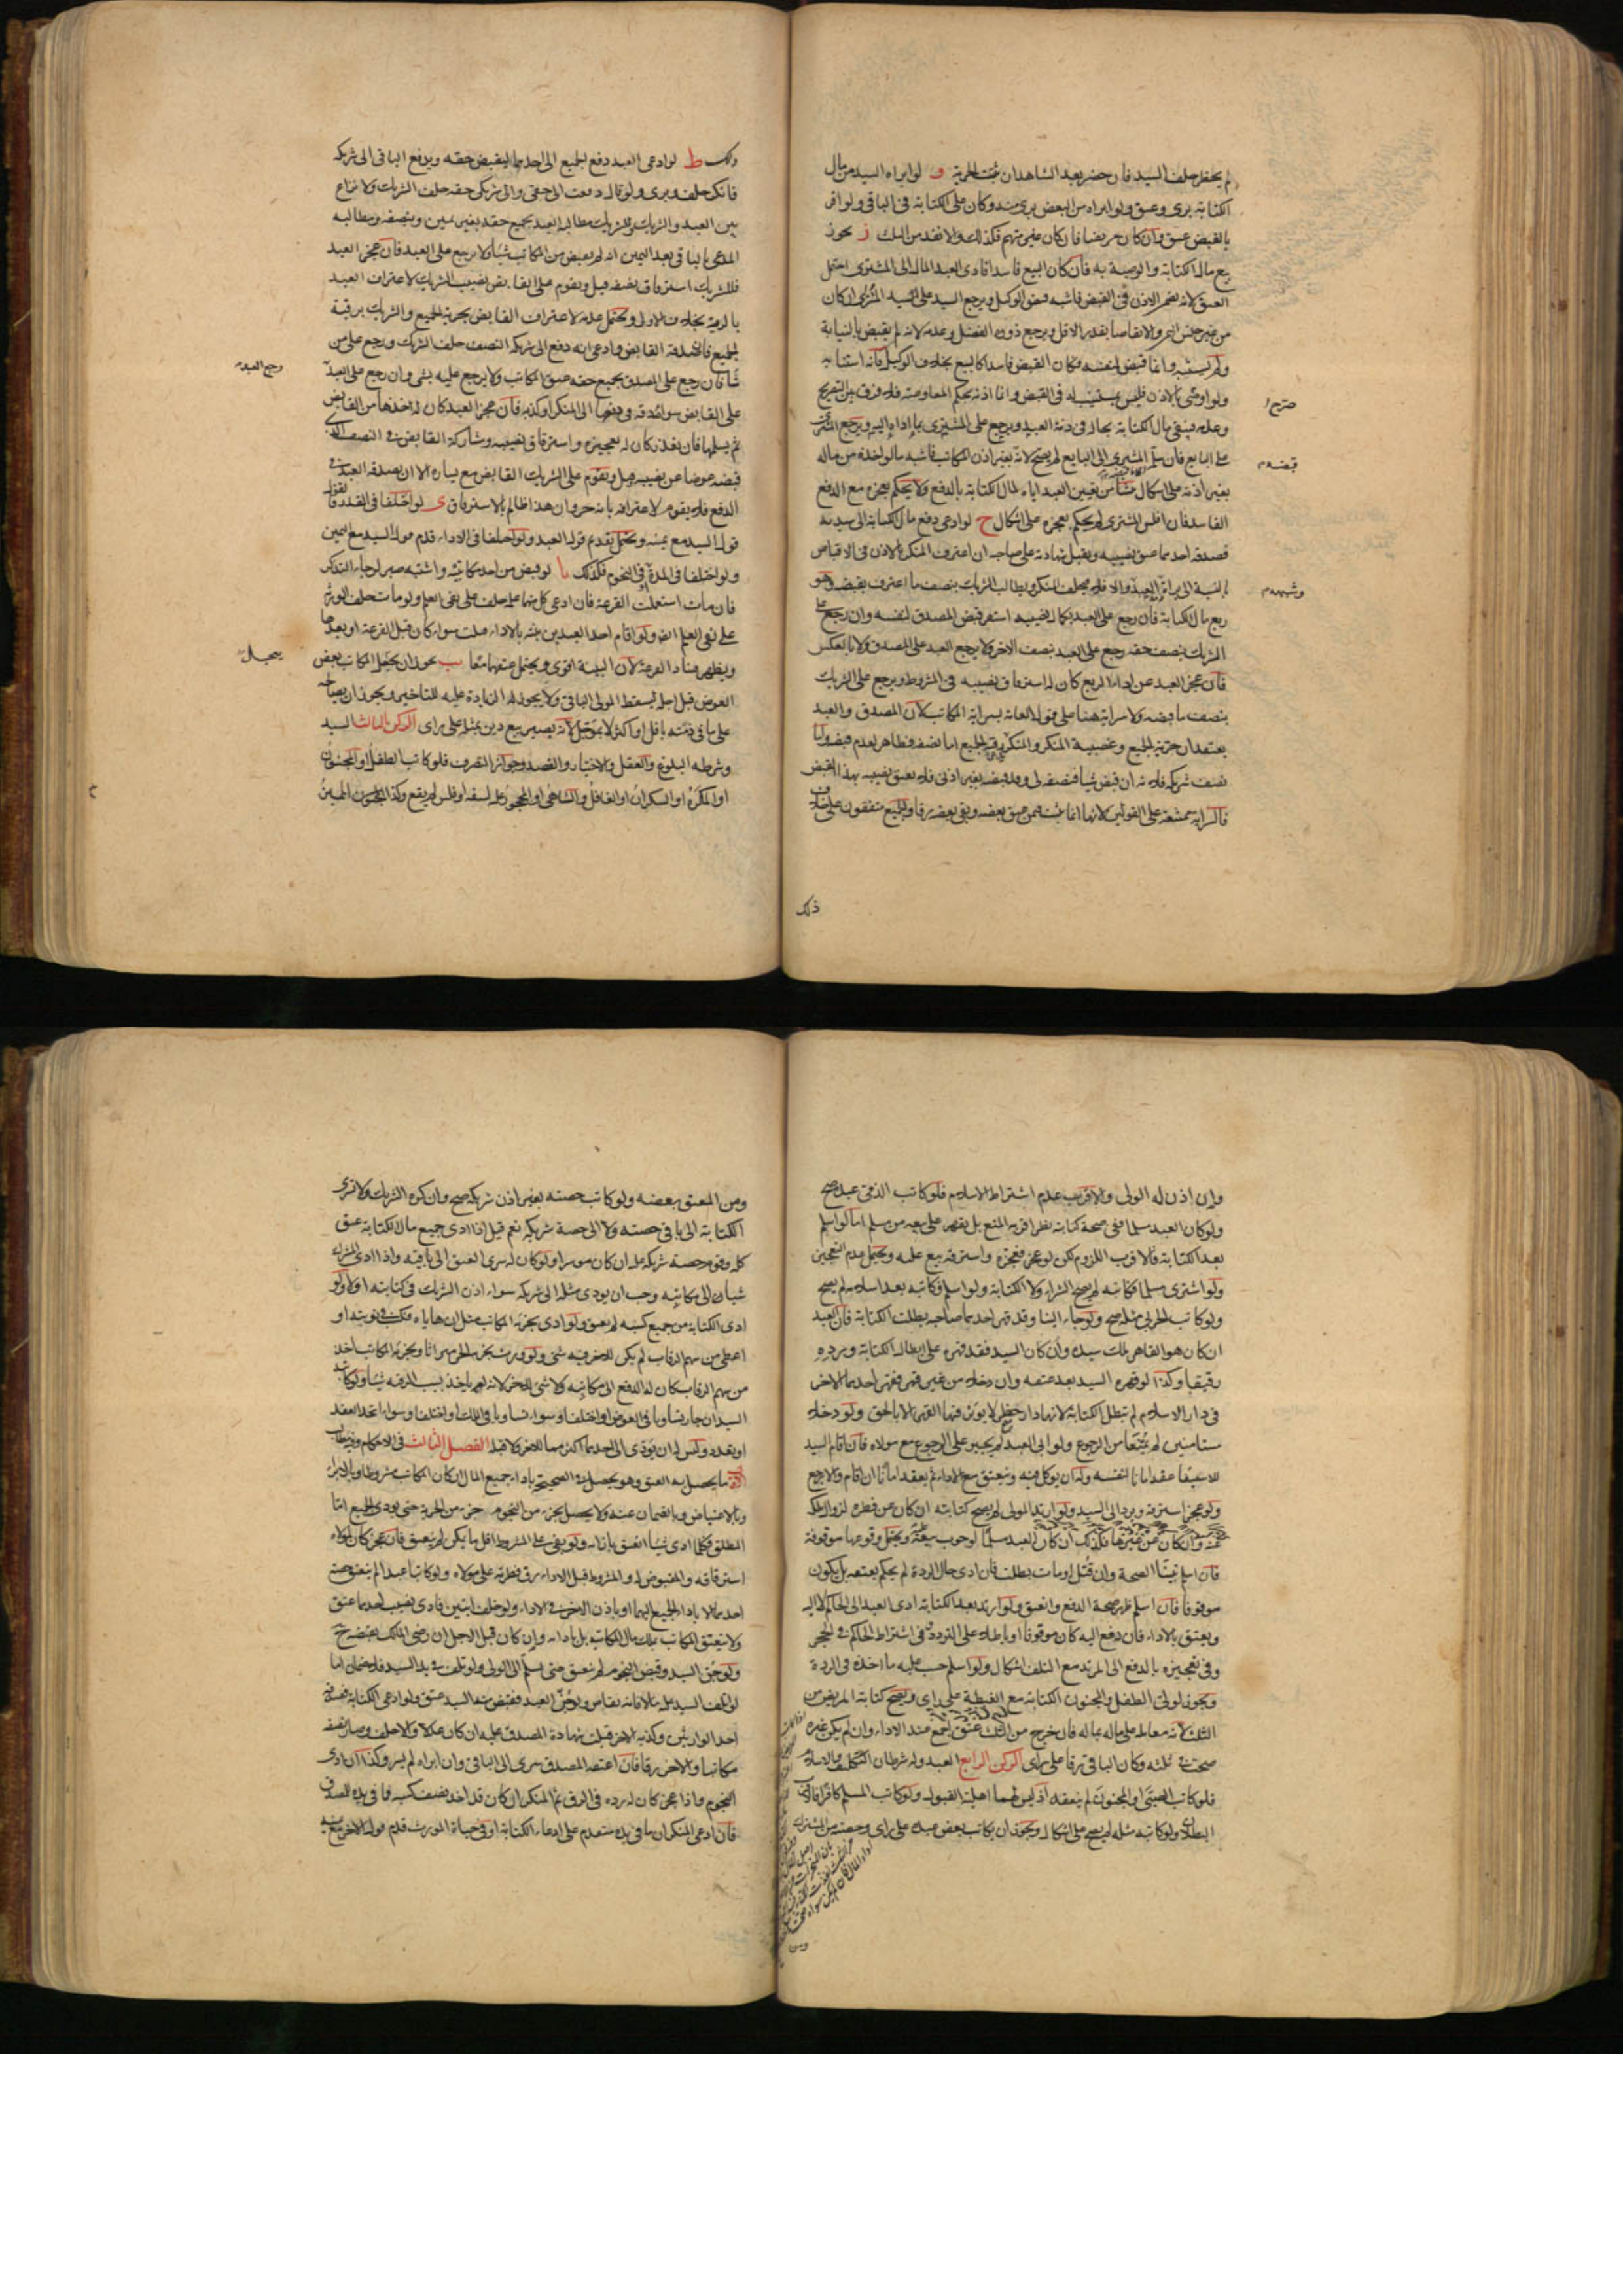 لم يحضر حلف السيد فان حضر بعد الشاهدان ثبتت الحرية و لو ابراه السيد من مال
الكتابة برئ وعتق ولو ابراه من البعض برئ منه وكان على الكتابة في الباقي ولو اقر
بالقبض عتق وان كان مريضا فان كان غير متهم فكذلك والا نفذ من الثلث ز يجوز
بيع مال الكتابة والوصية به فان كان البيع فاسدا فادى العبد المال الى المشتري احتمل
العتق لانه تضمن الاذن في القبض فاشبه قبض الوكيل ويرجع السيد على المشتري ان كان
من غير جنس الثمن والا تقاصا بقدر الاقل ويرجع ذو الفضل وعدمه لانه لم يقبض بالنيابة
ولم يستنبه وانما قبض لنفسه وكان القبض فاسدا كالبيع بخلاف الوكيل فانه استنابه
ولو اوصى بالاذن فليس بمستنيب له في القبض وانما اذنه بحكم المعاوضة فلا فرق بين التصريح
وعدمه فيبقى مال الكتابة بحاله في ذمة العبد ويرجع على المشتري بما اداه اليه ويرجع المشتري
على البايع فان سلم المشتري الى البايع لم يصح لانه بغير اذن المكاتب فاشبه ما لو اخذه من ماله
بغير اذنه على اشكال ينشأ من تعيين العبد اياه لمال الكتابة بالدفع ولا يحكم بعجزه مع الدفع
الفاسد فان افلس المشتري لم يحكم بعجزه على اشكال ح لو ادعى دفع مال الكتابة الى سيديه
فصدقه احدهما عتق نصيبه ويقبل شهادته على صاحبه ان اعترف المنكر بالاذن في الاقباض
بالنسبة الى براءة العبد والا فلا فيحلف المنكر ويطالب الشريك بنصف ما اعترف بقبضه وهو
ربع مال الكتابة فان رجع على العبد بكمال نصيبه استقر قبض المصدق لنفسه وان رجع على
الشريك بنصف حقه رجع على العبد بنصف الاخر ولا يرجع العبد على المصدق ولا بالعكس
فان عجز العبد عن اداء الربع كان له استرقاق نصيبه في المشروط ويرجع على الشريك
بنصف ما قبضه ولا سراية هنا على قول العامة بسراية المكاتب لان المصدق والعبد
يعتقدان حرية الجميع وغصبية المنكر والمنكر رقية الجميع اما نصفه فظاهر لعدم قبضه واما
نصف شريكه فلانه ان قبض شيئا فنصفه لي وقد قبضه بغير اذني فلا يعتق نصيبه بهذا القبض
فالسراية ممتنعة على القولين لانها انما تثبت فيمن عتق بعضه وبقي بعضه رقا والجميع متفقون على خلاف
صرح
قبضه
وشبهه
ذلك
ذلك ط لو ادعى العبد دفع الجميع الى احدهما ليقبض حقه ويدفع الباقي الى شريكه
فانكر حلف وبرئ ولو قال دفعت الي حقي والى شريكي حقه حلف الشريك ولا نزاع
بين العبد والشريك وللشريك مطالبة العبد بجميع حقه بغير يمين وبنصفه ومطالبة
المدعي بالباقي بعد اليمين انه لم يقبض من المكاتب شيئا ولا يرجع على العبد فان عجز العبد
فللشريك استرقاق نصفه قيل ويقوم على القابض نصيب الشريك لاعتراف العبد
بالرقية بخلاف الاول ويحتمل عدمه لاعتراف القابض بحرية الجميع والشريك برقية
الجميع فان صدقه القابض وادعى انه دفع الى شريكه النصف حلف الشريك ورجع على من
شاء فان رجع على المصدق بجميع حقه عتق المكاتب ولا يرجع عليه بشئ وان رجع على العبد
على القابض سواء صدقه في دفعها الى المنكر او كذبه فان عجز العبد كان له اخذها من القابض
ثم يسلمها فان تعذر كان له تعجيزه واسترقاق نصيبه ومشاركة القابض في النصف الذي
قبضه عوضا عن نصيبه قيل ويقوم على الشريك القابض مع يساره الا ان يصدقه العبد في
الدفع فلا يقوم لاعترافه بانه حر وان هذا ظالم بالاسترقاق ى لو اختلفا في القدر فالقول
قول السيد مع يمينه ويحتمل تقديم قول العبد ولو اختلفا في الاداء قدم قول السيد مع اليمين
ولو اختلفا في المدة او في النجوم فكذلك يا لو قبض من احد مكاتبيه واشتبه صبر لرجاء التذكر
فان مات استعملت القرعة فان ادعى كل منهما علمه حلف على نفي العلم ولو مات حلف الورثة
على نفي العلم ايضا ولو اقام احد العبدين بينة بالاداء قبلت سواء كان قبل القرعة او بعدها
ويظهر فساد القرعة لان البينة اقوى ويحتمل عتقهما معا يب يجوز ان يعجل المكاتب بعض
العوض قبل اجله ليسقط المولى الباقي ولا يجوز له الزيادة عليه للتاخير ويجوز ان يصالحه
على ما في ذمته باقل او اكثر لا بمؤجل لانه يصير بيع دين بمثله على راى الركن الثالث السيد
وشرطه البلوغ والعقل والاختيار والقصد وجواز التصرف فلو كاتب الطفل او المجنون
او المكره او السكران او الغافل والساهي او المحجور عليه لسفه او فلس لم يقع وكذا المجنون المميز
رجع العبد
يعجل
وان اذن له الولي والاقرب عدم اشتراط الاسلام فلو كاتب الذمي عبده صح
ولو كان العبد مسلما ففي صحة كتابته نظر اقربه المنع بل يقهر على بيعه من مسلم اما لو اسلم
بعد الكتابة فالاقرب اللزوم لكن لو عجز فعجزه واسترقه بيع عليه ويحتمل عدم التعجيز
ولو اشترى مسلما فكاتبه لم يصح الشراء ولا الكتابة ولو اسلم فكاتبه بعد اسلامه لم يصح
ولو كاتب الحربي مثله صح ولو جاء الينا وقد قهر احدهما صاحبه بطلت الكتابة فان العبد
ان كان هو القاهر ملك سيده وان كان السيد فقد قهره على ابطال الكتابة ورده
رقيقا وكذا لو قهره السيد بعد عتقه وان دخلا من غير قهر فقهر احدهما الاخر
في دار الاسلام لم تبطل الكتابة لانها دار حظر لا يؤثر فيها القهر الا بالحق ولو دخلا
مستامنين لم يمنعا من الرجوع ولو ابى العبد لم يجبر على الرجوع مع مولاه فان اقام السيد
للاستيفاء عقد امانا لنفسه وله ان يوكل فيه ويعتق مع الاداء ثم يعقد امانا ان اقام والا رجع
ولو عجز استرقه ويرد الى السيد ولو ارتد المولى لم يصح كتابته ان كان عن فطرة لزوال ملكه
عنه وان كان عن غيرها فكذلك ان كان العبد مسلما لوجوب بيعه ويحتمل وقوعها موقوفة
فان اسلم تبينا الصحة وان قتل او مات بطلت فان ادى حال الردة لم يحكم بعتقه بل يكون
موقوفا فان اسلم ظهر صحة الدفع والعتق ولو ارتد بعد الكتابة ادى العبد الى الحاكم لا اليه
ويعتق بالاداء فان دفع اليه كان موقوفا او باطلا على التردد في اشتراط الحاكم في الحجر
وفي تعجيزه بالدفع الى المرتد مع التلف اشكال ولو اسلم حسب عليه ما اخذه في الردة
ويجوز لولي الطفل والمجنون الكتابة مع الغبطة على راى ويصح كتابة المريض من
الثلث لانه معاملة على ماله بماله فان خرج من الثلث عتق اجمع عند الاداء وان لم يكن غيره
صحت في ثلثه وكان الباقي رقا على راى الركن الرابع العبد وله شرطان التكليف والاسلام
فلو كاتب الصبي او المجنون لم ينعقد اذ ليس لهما اهلية القبول ولو كاتب المسلم كافرا فالاقرب
البطلان ولو كاتبه مثله لم يصح على اشكال ويجوز ان يكاتب بعض عبده على راى وحصته من المشترك
ومن
ومن المعتق بعضه ولو كاتب حصته بغير اذن شريكه صح وان كره الشريك ولا تسري
الكتابة الى باقي حصته ولا الى حصة شريكه نعم قيل اذا ادى جميع مال الكتابة عتق
كله وقوم حصة شريكه عليه ان كان موسرا ولو كان له سرى العتق الى باقيه واذا ادى المشترك
شيئا الى مكاتبه وجب ان يودي مثله الى شريكه سواء اذن الشريك في كتابته او لا ولو
ادى الكتابة من جميع كسبه لم يعتق ولو ادى بجزئه المكاتب مثل ان هاياه فكسب في نوبته او
اعطي من سهم الرقاب لم يكن للاخر فيه شئ ولو ورث بجزئه الحر ميراثا وبجزئه المكاتب اخذ
من سهم الرقاب كان له الدفع الى مكاتبه ولا شئ للاخر لانه لم ياخذ بسبب الرقية شيئا ولو كاتبه
السيدان جاز تساويا في العوض او اختلفا وسواء تساويا في الملك او اختلفا وسواء اتحد العقد
او تعدد وليس له ان يؤدي الى احدهما اكثر مما للاخر ولا قبله الفصل الثالث في الاحكام وفيه مطالب
الاول ما يحصل به العتق وهو يحصل في الصحيحة باداء جميع المال ان كان المكاتب مشروطا وبالابراء
وبالاعتياض وبالضمان عنه ولا يحصل بجزء من النجوم جزء من الحرية حتى يودى الجميع اما
المطلق فكلما ادى شيئا انعتق بازائه ولو بقي على المشروط اقل ما يكون لم ينعتق فان عجز كان للمولى
استرقاقه والمقبوض له والمشروط قبل الاداء رق فطرته على مولاه ولو كاتبا عبدا لم ينعتق حصة
احدهما الا باداء الجميع اليهما او باذن الاخر في الاداء ولو خلف ابنين فادى نصيب احدهما عتق
ولا ينعتق المكاتب بملك مال الكتابة بل بادائه وان كان قبل الاجل ان رضي المالك بقبضه ح
ولو جن السيد وقبض النجوم لم ينعتق حتى يسلم الى الولي ولو تلف في يد السيد فلا ضمان اما
لو اتلف السيد عليه مالا فانه تقاص ولو جن العبد فقبض منه السيد عتق ولو ادعى الكتابة فصدقه
احد الوارثين وكذبه الاخر قبلت شهادة المصدق عليه ان كان عدلا والا حلف وصار نصفه
مكاتبا والاخر رقا فان اعتقه المصدق سرى الى الباقي وان ابراه لم يسر وكذا ان ادى
النجوم واذا عجز كان له رده في الرق ثم المنكر ان كان قد اخذ نصف كسبه فما في يده للمصدق
فان ادعى المنكر ان ما في يده متقدم على ادعاء الكتابة او في حياة المورث قدم قول الاخر مع يمينه